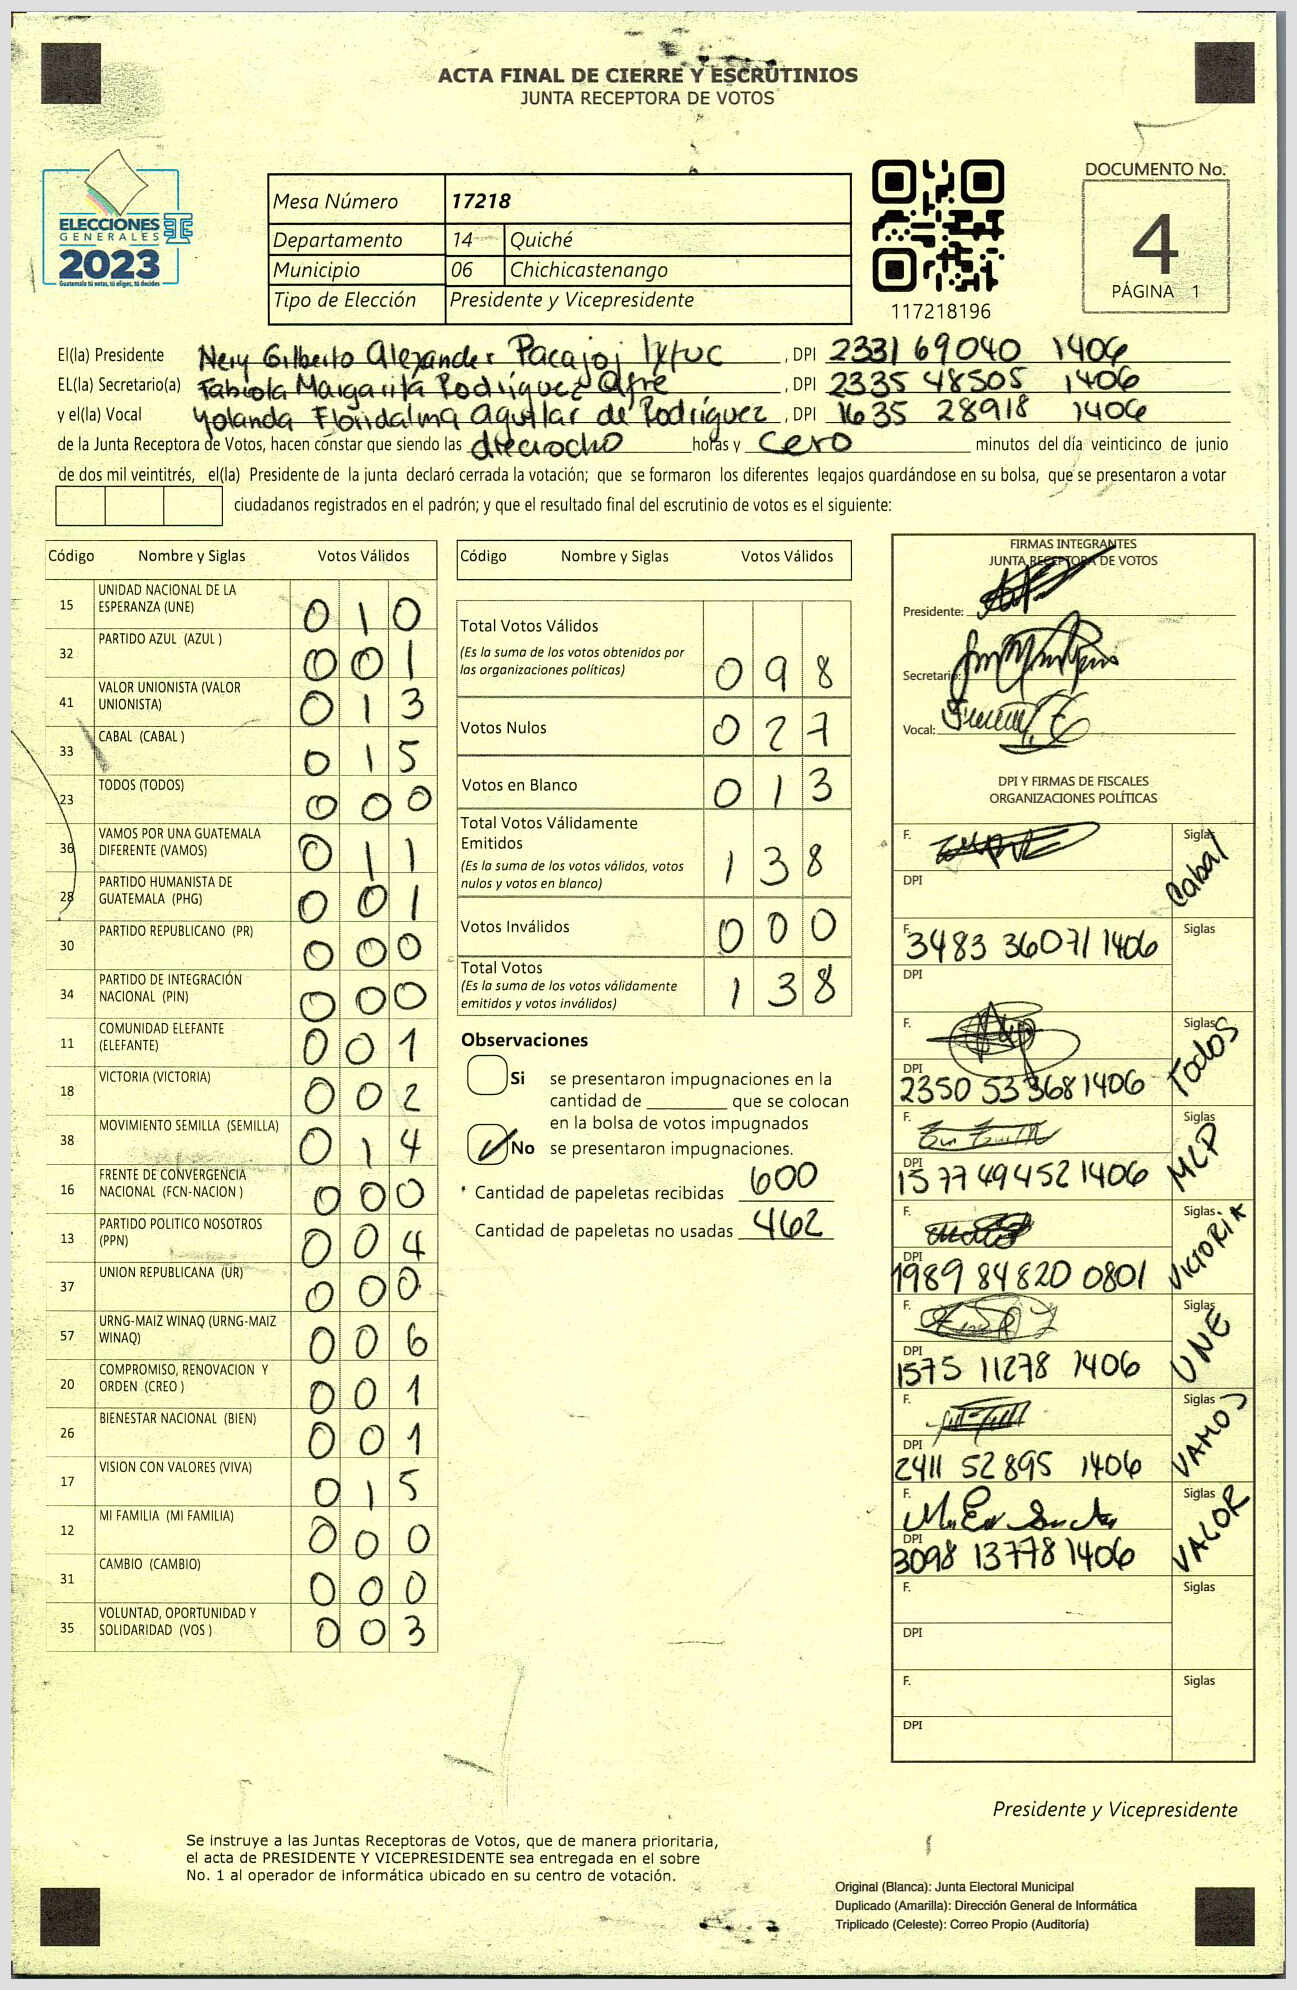 ACTA FINAL DE CIERRE Y ESCRUTINIOS
JUNTA RECEPTORA DE VOTOS
ELECCIONES
GENERALES
2023
Guatemala tú votas, tú eliges, tú decides
Mesa Número 17218
Departamento 14 Quiché
Municipio 06 Chichicastenango
Tipo de Elección Presidente y Vicepresidente
117218196
DOCUMENTO No.
4
PÁGINA 1
El(la) Presidente Nery Gilberto Alexander Pacajoj Ixtuc, DPI 2331 69040 1406
EL(la) Secretario(a) Fabiola Margarita Rodríguez, DPI 2335 48505 1406
y el(la) Vocal Yolanda Floridalma Aguilar de Rodríguez, DPI 1635 28918 1406
de la Junta Receptora de Votos, hacen constar que siendo las dieciocho horas y cero minutos del día veinticinco de junio
de dos mil veintitrés, el(la) Presidente de la junta declaró cerrada la votación; que se formaron los diferentes legajos guardándose en su bolsa, que se presentaron a votar
ciudadanos registrados en el padrón; y que el resultado final del escrutinio de votos es el siguiente:
Código Nombre y Siglas Votos Válidos
15 UNIDAD NACIONAL DE LA ESPERANZA (UNE) 010
32 PARTIDO AZUL (AZUL ) 001
41 VALOR UNIONISTA (VALOR UNIONISTA) 013
33 CABAL (CABAL ) 015
23 TODOS (TODOS) 000
36 VAMOS POR UNA GUATEMALA DIFERENTE (VAMOS) 011
28 PARTIDO HUMANISTA DE GUATEMALA (PHG) 001
30 PARTIDO REPUBLICANO (PR) 000
34 PARTIDO DE INTEGRACIÓN NACIONAL (PIN) 000
11 COMUNIDAD ELEFANTE (ELEFANTE) 001
18 VICTORIA (VICTORIA) 002
38 MOVIMIENTO SEMILLA (SEMILLA) 014
16 FRENTE DE CONVERGENCIA NACIONAL (FCN-NACION ) 000
13 PARTIDO POLITICO NOSOTROS (PPN) 004
37 UNION REPUBLICANA (UR) 000
57 URNG-MAIZ WINAQ (URNG-MAIZ WINAQ) 006
20 COMPROMISO, RENOVACION Y ORDEN (CREO ) 001
26 BIENESTAR NACIONAL (BIEN) 001
17 VISION CON VALORES (VIVA) 015
12 MI FAMILIA (MI FAMILIA) 000
31 CAMBIO (CAMBIO) 000
35 VOLUNTAD, OPORTUNIDAD Y SOLIDARIDAD (VOS ) 003
Código Nombre y Siglas Votos Válidos
Total Votos Válidos
(Es la suma de los votos obtenidos por
las organizaciones políticas) 098
Votos Nulos 027
Votos en Blanco 013
Total Votos Válidamente
Emitidos
(Es la suma de los votos válidos, votos
nulos y votos en blanco) 138
Votos Inválidos 000
Total Votos
(Es la suma de los votos válidamente
emitidos y votos inválidos) 138
Observaciones
Si se presentaron impugnaciones en la
cantidad de ________ que se colocan
en la bolsa de votos impugnados
No se presentaron impugnaciones.
Cantidad de papeletas recibidas 600
Cantidad de papeletas no usadas 462
FIRMAS INTEGRANTES
JUNTA RECEPTORA DE VOTOS
Presidente:
Secretario:
Vocal:
DPI Y FIRMAS DE FISCALES
ORGANIZACIONES POLÍTICAS
F. Siglas Cabal
DPI
F. 3483 36071 1406 Siglas
DPI
F. Siglas Todos
DPI 2350 53368 1406
F. Siglas MLP
DPI 1577 49452 1406
F. Siglas VICTORIA
DPI 1989 84820 0801
F. Siglas UNE
DPI 1575 11278 1406
F. Siglas VAMOS
DPI 2411 52895 1406
F. Siglas VALOR
DPI 3098 13778 1406
F. Siglas
DPI
F. Siglas
DPI
Presidente y Vicepresidente
Se instruye a las Juntas Receptoras de Votos, que de manera prioritaria,
el acta de PRESIDENTE Y VICEPRESIDENTE sea entregada en el sobre
No. 1 al operador de informática ubicado en su centro de votación.
Original (Blanca): Junta Electoral Municipal
Duplicado (Amarilla): Dirección General de Informática
Triplicado (Celeste): Correo Propio (Auditoría)